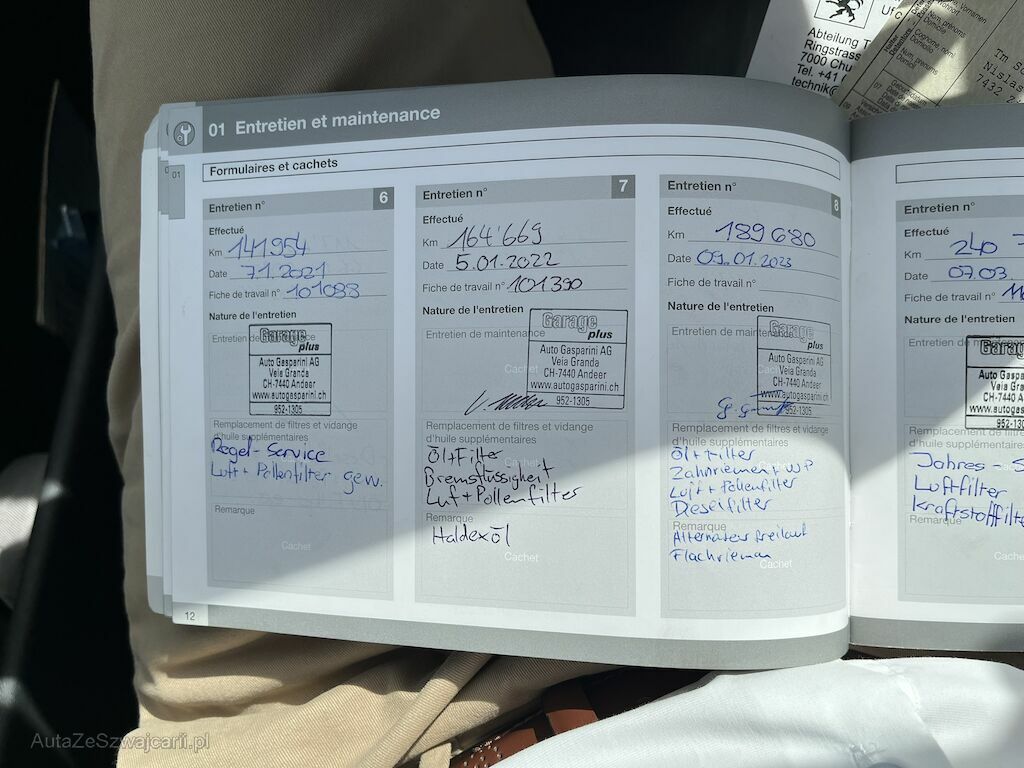 Abteilung T
Ringstrass
7000 Chu
Tel. +41 (
technik@
Nislas
01 Entretien et maintenance
01
Formulaires et cachets
Entretien n° 6
Effectué
Km 141954
Date 7.1.2021
Fiche de travail n° 101088
Nature de l'entretien
Entretien de maintenance
Garage
plus
Auto Gasparini AG
Veia Granda
CH-7440 Andeer
www.autogasparini.ch
952-1305
Remplacement de filtres et vidange
d'huile supplémentaires
Regel-Service
Luft + Pollenfilter gew.
Remarque
Cachet
12
Entretien n° 7
Effectué
Km 164'669
Date 5.01.2022
Fiche de travail n° 101390
Nature de l'entretien
Entretien de maintenance
Cachet
Garage
plus
Auto Gasparini AG
Veia Granda
CH-7440 Andeer
www.autogasparini.ch
952-1305
Remplacement de filtres et vidange
d'huile supplémentaires
Öl+Filter
Bremsflüssigkeit
Luf+Pollenfilter
Remarque
Haldexöl
Cachet
Entretien n° 8
Effectué
Km 189680
Date 09.01.2023
Fiche de travail n°
Nature de l'entretien
Entretien de maintenance
Garage
plus
Auto Gasparini AG
Veia Granda
CH-7440 Andeer
www.autogasparini.ch
952-1305
Remplacement de filtres et vidange
d'huile supplémentaires
Öl + Filter
Zahnriemen + WP
Luft + Pollenfilter
Deselfilter
Remarque
Alternateur freilauf
Flachrieman
Cachet
Entretien n°
Effectué
Km 240
Date 07.03.
Fiche de travail n°
Nature de l'entretien
Garag
Auto Gaspa
Veia Gran
CH-7440 An
www.autogaspa
952-13
Remplacement de filtres et
d'huile supplémentaires
Jahres - S
Luftfilter
Kraftstofffilte
Remarque
Cachet
AutaZeSzwajcarii.pl